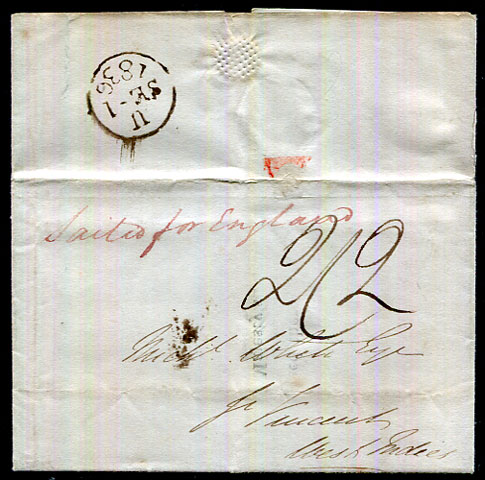 U
SE-1
1836
Sailed for England
2/2
Esqr
St Vincents
West Indies